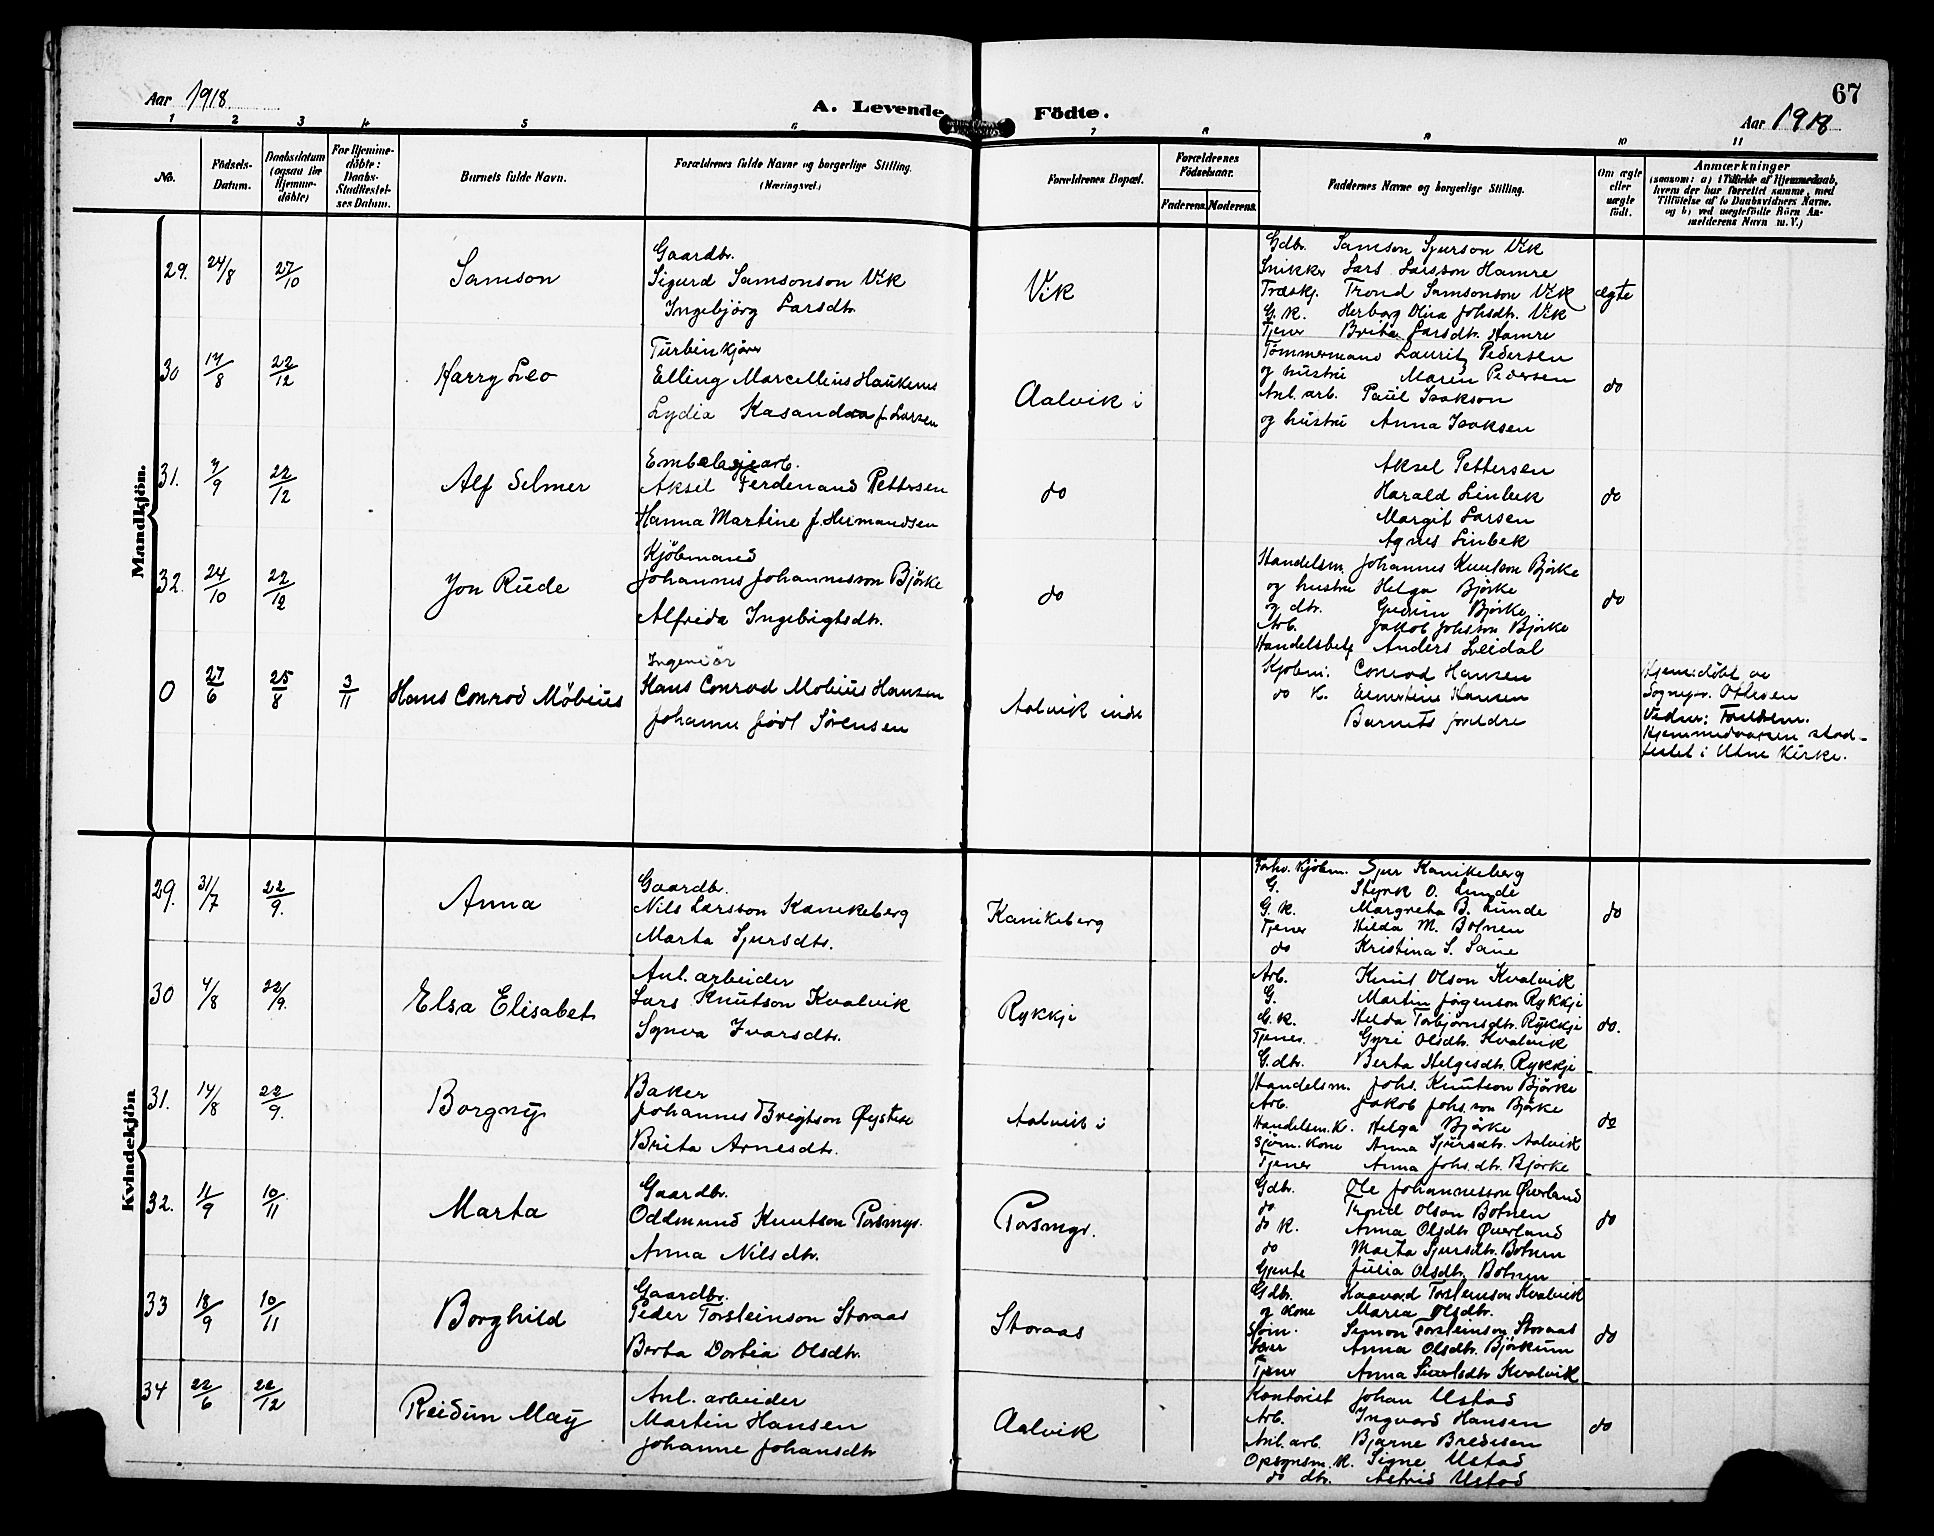 67
Aar 1918
A. Levende Födte.
Aar 1918
1 2 3 4 5 6 7 8 9 10 11
No.
Födsels-Datum.
Daabsdatum (ogsaa for Hjemmedöbte)
For Hjemmedöbte: Daabs-Stadfæstelses Datum.
Barnets fulde Navn.
Forældrenes fulde Navne og borgerlige Stilling. (Næringsvei.)
Forældrenes Bopæl.
Forældrenes Födselsaar.
Faderens. Moderens.
Faddernes Navne og borgerlige Stilling.
Om ægte eller uægte født.
Anmærkninger
(saasom: a) i Tilfælde af Hjemmedaab, hvem der har forrettet samme, med Tilföielse af to Daabsvidners Navne. og b) ved uægtefödte Börn Anmelderens Navn m. V.)
Mandkjön.
29. 24/8 27/10 Samson
Gaardbr.
Sigurd Samsonson Vik
Ingebjörg Larsdtr.
Vik
Gdbr. Samson Sjurson Vik
Snikker Lars Larsson Hamre
Træskj. Trond Samsonson Vik
G. K. Herborg Olina Johsdtr. Vik
Tjener Brita Larsdtr. Hamre
ægte
30 14/8 22/12 Harry Leo
Turbinkjører
Elling Marcellius Haukenes
Lydia Kasandra f. Larsen
Aalvik i
Tømmermand Lauritz Pedersen
og hustru Maren Pedersen
Anl. arb. Paul Isakson
og hustru Anna Isaksen
do
31. 7/9 22/12 Alf Selmer
Embalagjearb.
Aksel Ferdenand Pettersen
Hanna Martine f. Hermandsen
do
Aksel Pettersen
Harald Linbek
Margit Larsen
Agnes Linbek
do
32. 24/10 22/12 Jon Rude
Kjöbmand
Johannes Johannesson Björke
Alfrida Ingebrigtsdtr.
do
Handelsm. Johannes Knutson Björke
og hustru Helga Björke
og dtr. Gudrun Björke
Arb. Jakob Johsson Björke
Handelsbetj Anders Leidal
do
0 27/6 25/8 3/11 Hans Conrod Möbius
Ingeniör
Hans Conrad Mobius Hansen
Johanne Sørensen
Aalvik indr
Kjøbm: Conrod Hansen
do K. Ernestine Hansen
Barnets foreldre
Hjemmedöbt av
Sognepr. Oftesen
Vidner: Foreldrene.
Hjemmedaapen stad-
festet i Utne Kirke.
Kvindekjön
29. 31/7 22/9. Anna
Gaardbr.
Nils Larsson Kanikeberg
Marta Sjursdtr.
Kanikeberg
Forhv. Kjöbm. Sjur Kanikeberg
G. Styrk O. Lunde
G. K. Margreta B. Lunde
Tjener Hilda M. Botnen
do Kristina S. Saue
do
30 4/8 22/9. Elsa Elisabet
Anl. arbeider
Lars Knutson Kvalvik
Synva Ivarsdtr.
Rykkje
Arb. Knut Olson Kvalvik
G. Martin Jørgenson Rykkje
G. K. Hilda Torbjørnsdtr. Rykkje
Tjener. Gyri Olsdtr. Kvalvik
G.dtr. Berta Helgesdtr. Rykkje
do.
31. 14/8 22/9. Borgny
Baker
Johannes Brigtson Øystese
Brita Arnesdtr.
Aalvik i
Handelsm. Johs. Knutson Björke
Arb. Jakob Johs.son Björke
Handelsm. K. Helga Björke
Sjöm. Kone Anna Sjursdtr. Aalvik
Tjener Anna Johs.dtr. Björke
do
32. 11/9 10/11 Marta
Gaardbr.
Oddmund Knutson Porsmyr.
Anna Nilsdtr.
Porsmyr.
Gdbr. Ole Johannesson Øverland
do Trond Olson Botnen
do K. Anna Olsdtr Øverland
do Marta Sjursdtr. Botnen
Gjente Julia Olsdtr. Botnen
do
33 18/9 10/11 Borghild
Gaardbr.
Peder Torsteinson Storaas
Berta Dortia Olsdtr.
Storaas
Gdbr. Haavard Torsteinson Kvalvik
og Kone Maria Olsdtr.
Sjöm. Simon Torsteinson Storaas
Anna Olsdtr. Björkum
Tjener Anna Siversdtr Kvalvik
do
34 22/6 22/12 Reidun May
Anl. arbeider
Martin Hansen
Johanne Johansdtr
Aalvik
Kontorist Johan Ustad
Arb. Ingvard Hansen
Anl. arb. Bjarne Bredesen
Opsynsm. K. Signe Ustad
do dtr. Astrid Ustad
do